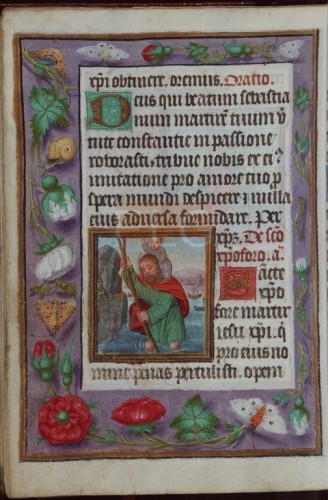 xp̄i obtinere. oremus. Oratio.
Deus qui beatum sebastia
num martirē tuum v̄
tute constantie in passione
roborasti: tribue nobis ex ei⁹
imitatione pro amore tuo p̱
spera mundi despicere ⁊ nulla
eius aduersa formidare. Per
xp̄ꝫ. De scō
xpoforo. añ.
Sancte
xp̄o
fore martir
iesu xp̄i. q̄
pro eius no
mine penas pertulisti. opem